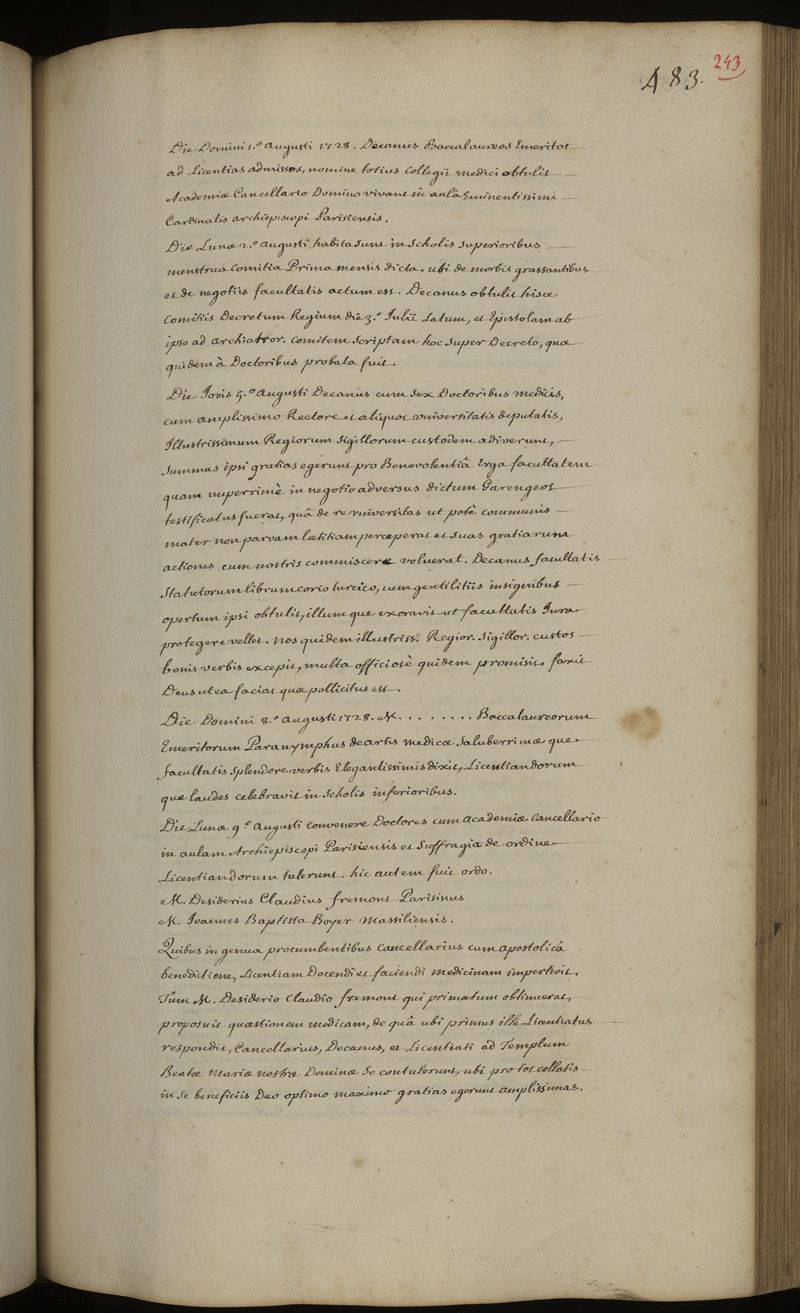 243
483.
Die Domini 1.º Augusti 1728. Decanus Baccalaureos Emeritos
ad Licentias admissos, nomine totius Collegii medici obtulit
Academiæ Cancellario Domino vivant in aulâ Eminentissimi
Cardinalis archiepiscopi Parisiensis.
Die Lunæ 2.º Augusti, habita sunt in Scholis superioribus
menstrua Comitia Prima mensis dicta. ubi de morbis grassantibus
et de negotiis facultatis actum est. Decanus obtulit hisce
Comitiis Decretum Regium die 3.ª Julii Latum, et Epistolam ab
ipso ad archiatror. Comitem Scriptam hoc super Decreto, quæ
quidem à Doctoribus probata fuit.
Die Jovis 5.º Augusti Decanus cum sex Doctoribus medicis,
cum amplissimo Rectore et aliquot universitatis deputatis,
Illustrissimum Regiorum Sigillorum custodem adiverunt,
Summas ipsi gratias egerunt pro Benevolentiâ Erga facultatem
quam nuperrimè in negotio adversus dictum Garengeot
testificatus fuerat, quâ de re universitas ut potè communis
mater non parvam lætitiam perceperat et suas gratiarum
actiones cum nostris commiscere voluerat. Decanus facultatis
Statutorum librum corio turcico, cum gentilitiis insignibus
opertum ipsi obtulit, illumque exoravit ut facultatis Jura
protegere vellet. Nos quidem illustriss. Regior. Sigillor. custos
bonis verbis excepit, multa officiosè quidem promisit. faxit
Deus ut ea faciat quæ pollicitus est.
Die Domini 8.ª Augusti 1728. M. . . . . . . . Baccalaureorum
Emeritorum Paranymphus de artis medicæ Saluberrimæ que
facultatis Splendore verbis Elegantissimis dixit, Licentiandorum
que laudes celebravit in Scholis inferioribus.
Die Lunæ 9.ª Augusti convenere Doctores cum Academiæ Cancellario
in aulam Archiepiscopi Parisiensis et Suffragia de ordine
Licentiandorum tulerunt. hic autem fuit ordo.
M. Desiderius Claudius fremont Parisinus
M. Joannes Baptista Boyer Massiliensis.
Quibus in genua procumbentibus Cancellarius cum apostolicâ
benedictione, Licentiam Docendi et faciendi medicinam impertivit.
Tum M. Desiderio Claudio fremont qui primatum obtinuerat,
proposuit quæstionem medicam, de quâ ubi primus ille Licentiatus
respondit, Cancellarius, Decanus, et Licentiati ad Templum
Beatæ Mariæ nostræ Dominæ Se contulerunt, ubi pro tot collatis
in Se beneficiis Deo optimo maximo gratias egerunt amplissimas.